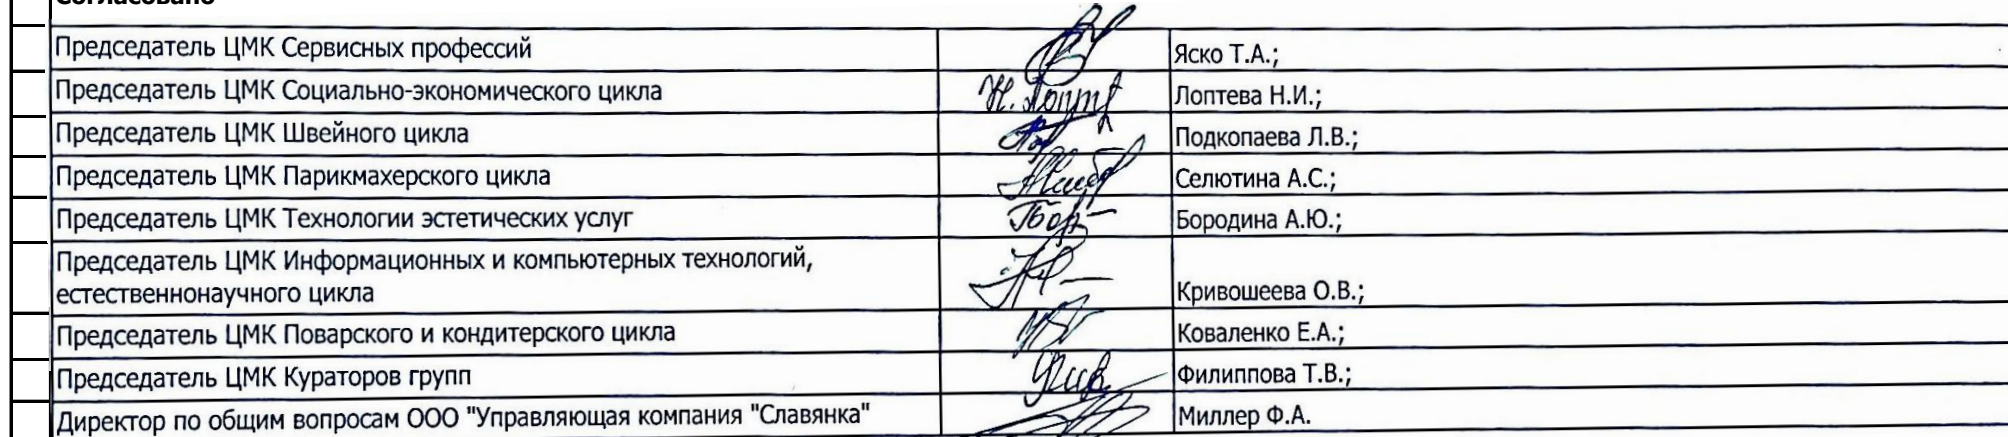 Согласовано
Председатель ЦМК Сервисных профессий Яско Т.А.;
Председатель ЦМК Социально-экономического цикла Н. Лопт Лоптева Н.И.;
Председатель ЦМК Швейного цикла Подкопаева Л.В.;
Председатель ЦМК Парикмахерского цикла Селютина А.С.;
Председатель ЦМК Технологии эстетических услуг Бор Бородина А.Ю.;
Председатель ЦМК Информационных и компьютерных технологий,
естественнонаучного цикла Кривошеева О.В.;
Председатель ЦМК Поварского и кондитерского цикла Коваленко Е.А.;
Председатель ЦМК Кураторов групп Филиппова Т.В.;
Директор по общим вопросам ООО "Управляющая компания "Славянка" Миллер Ф.А.